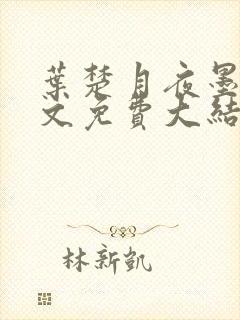 葉楚月夜墨
文免費大結
林新凱